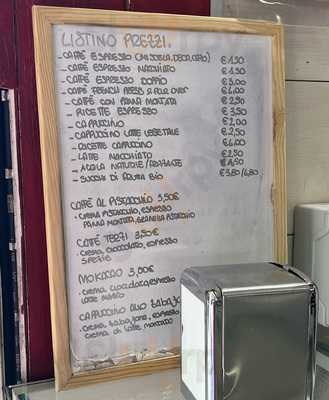 LISTINO PREZZI.
- CAFFÈ ESPRESSO (MISCELA, DECA, ORZO) €1,50
- CAFFÈ ESPRESSO MACCHIATO €1,50
- CAFFÈ ESPRESSO DOPPIO €3,00
- CAFFÈ FRENCH PRESS & POUR OVER €4,00
- CAFFÈ CON PANNA MONTATA €2,50
- RICETTE ESPRESSO €3,50
- CAPPUCCINO €2,00
- CAPPUCCINO LATTE VEGETALE €2,50
- RICETTE CAPPUCCINO €4,00
- LATTE MACCHIATO €2,50
- ACQUA NATURALE/FRIZZANTE €1,50
- SUCCHI DI FRUTTA BIO €3,80/4,80
CAFFÈ AL PISTACCHIO 3,50€
• CREMA PISTACCHIO, ESPRESSO
PANNA MONTATA, GRANELLA PISTACCHIO
CAFFÈ TERZI 3,50€
• CREMA CIOCCOLATO, ESPRESSO
SPEZIE
MOKACAO 3,00€
• CREMA CIOCCOLATO, ESPRESSO
LATTE
CAPPUCCINO ALLO ZABAJO
• CREMA ZABAJONE, ESPRESSO
CREMA DI LATTE MONTATO